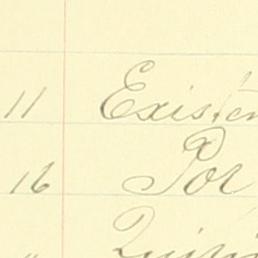 11 Existen
16 Por
"